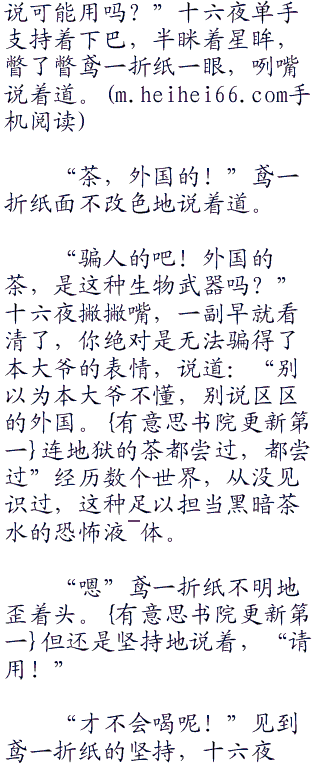 说可能用吗？”十六夜单手
支持着下巴，半眯着星眸，
瞥了瞥鸢一折纸一眼，咧嘴
说着道。(m.heihei66.com手
机阅读)
“茶，外国的！”鸢一
折纸面不改色地说着道。
“骗人的吧！外国的
茶，是这种生物武器吗？”
十六夜撇撇嘴，一副早就看
清了，你绝对是无法骗得了
本大爷的表情，说道：“别
以为本大爷不懂，别说区区
的外国。{有意思书院更新第
一}连地狱的茶都尝过，都尝
过”经历数个世界，从没见
识过，这种足以担当黑暗茶
水的恐怖液¯体。
“嗯”鸢一折纸不明地
歪着头。{有意思书院更新第
一}但还是坚持地说着，“请
用！”
“才不会喝呢！”见到
鸢一折纸的坚持，十六夜